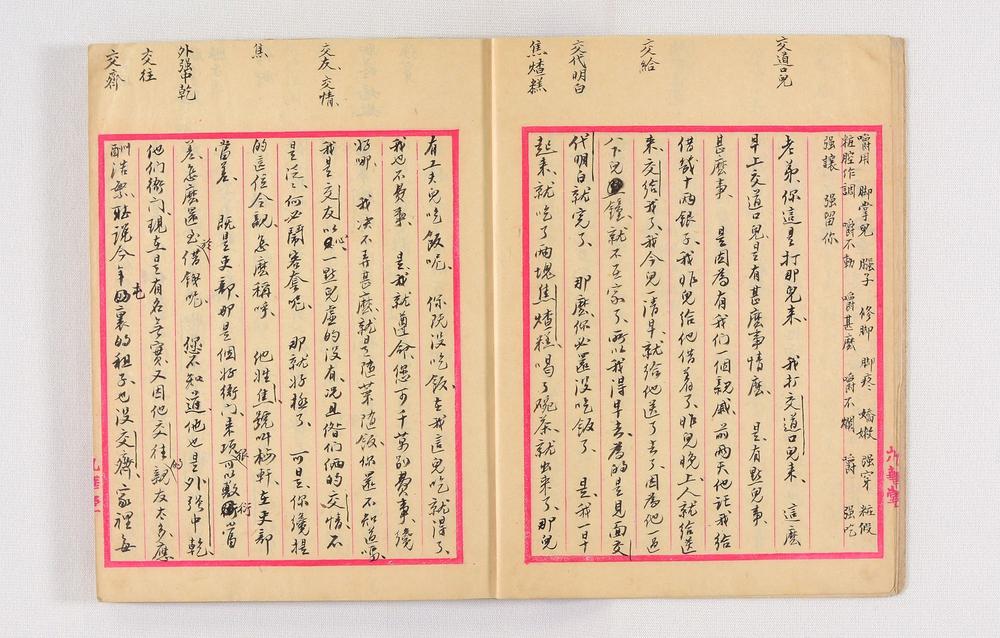 交道口兒
交給
交代明白
焦燌糕
嚼用 腳掌兒 腦子 修腳 腳疼 嬌嫩 强穿 粧假
粧腔作調 嚼不動 嚼甚麽 嚼不爛 嚼 强吃
强讓 强留你
老弟、你這是打那兒来、 我打交道口兒来、 這麽
早上交道口兒是有甚麽事情麽、 是有點兒事、
甚麽事、 是因爲有我們一個親戚、前兩天他託我給
借幾十兩銀子、我昨兒給他借着了、昨兒晚上人就給送
来、交給我了、我今兒一清早、就給他送了去了、因爲他一過
八下兒鐘、就不在家了、所以我得早去、爲的是見面交
代明白就完了、 那麽你必還没吃飯了、 是我一早
起来、就吃了兩塊焦燌糕、喝了碗茶、就出来了、那兒
交友、交情、
焦
外强中乾
交往
交齊
有工夫兒吃飯呢、 你既没吃飯、在我這兒吃就得了、
我也不費事、 是我就遵命、您可千萬别費事纔
好哪、 我决不弄甚麽、就是隨菜隨飯、你還不知道嗎、
我是交友以心、一點兒虚的没有、况且偺們倆的交情、不
是泛泛、何必鬧客套呢、 那就好極了、 可是你纔提
的這位令親怎麽稱呼、 他姓焦、號叫 軒、在吏部
當差、 既是吏部、那是個好衙門、来項狠可以敷衍、當
差、怎麽還至於借錢呢、 您不知道、他也是外强中乾、
他們衙門、現在是有名無實、又因他交往的親友太多、應
酬浩繁、聽說今年屯裏的租子、也没交齊、家裡每
九華堂